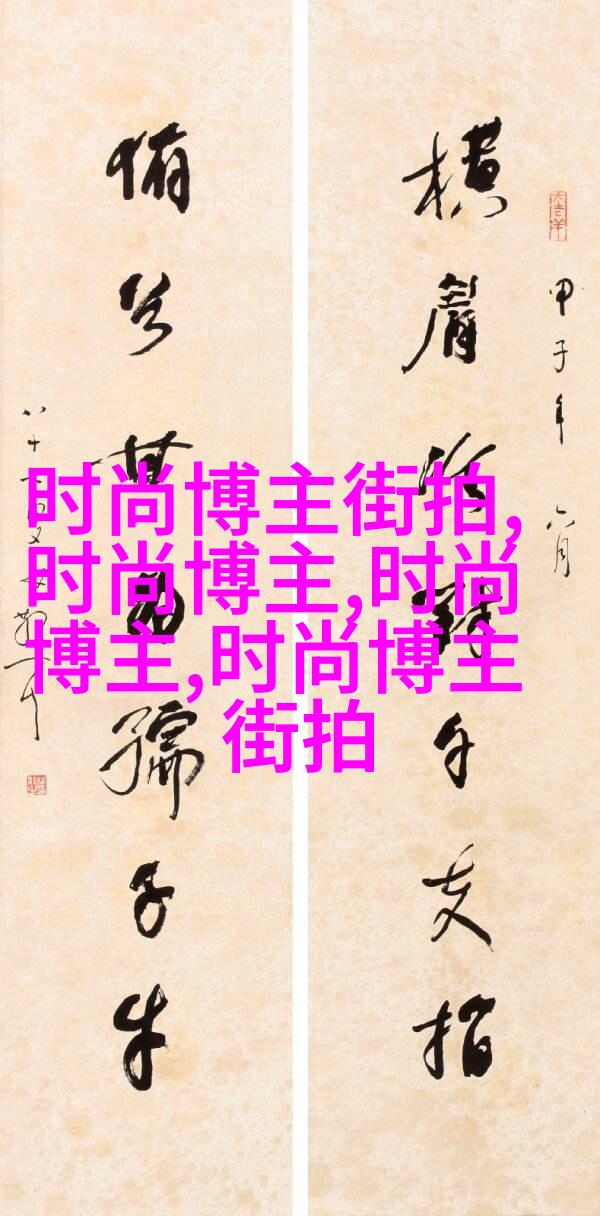 橫眉冷對千夫指
甲子年六月
俯首甘為孺子牛
时尚博主街拍,
时尚博主,时尚
博主,时尚博主
街拍